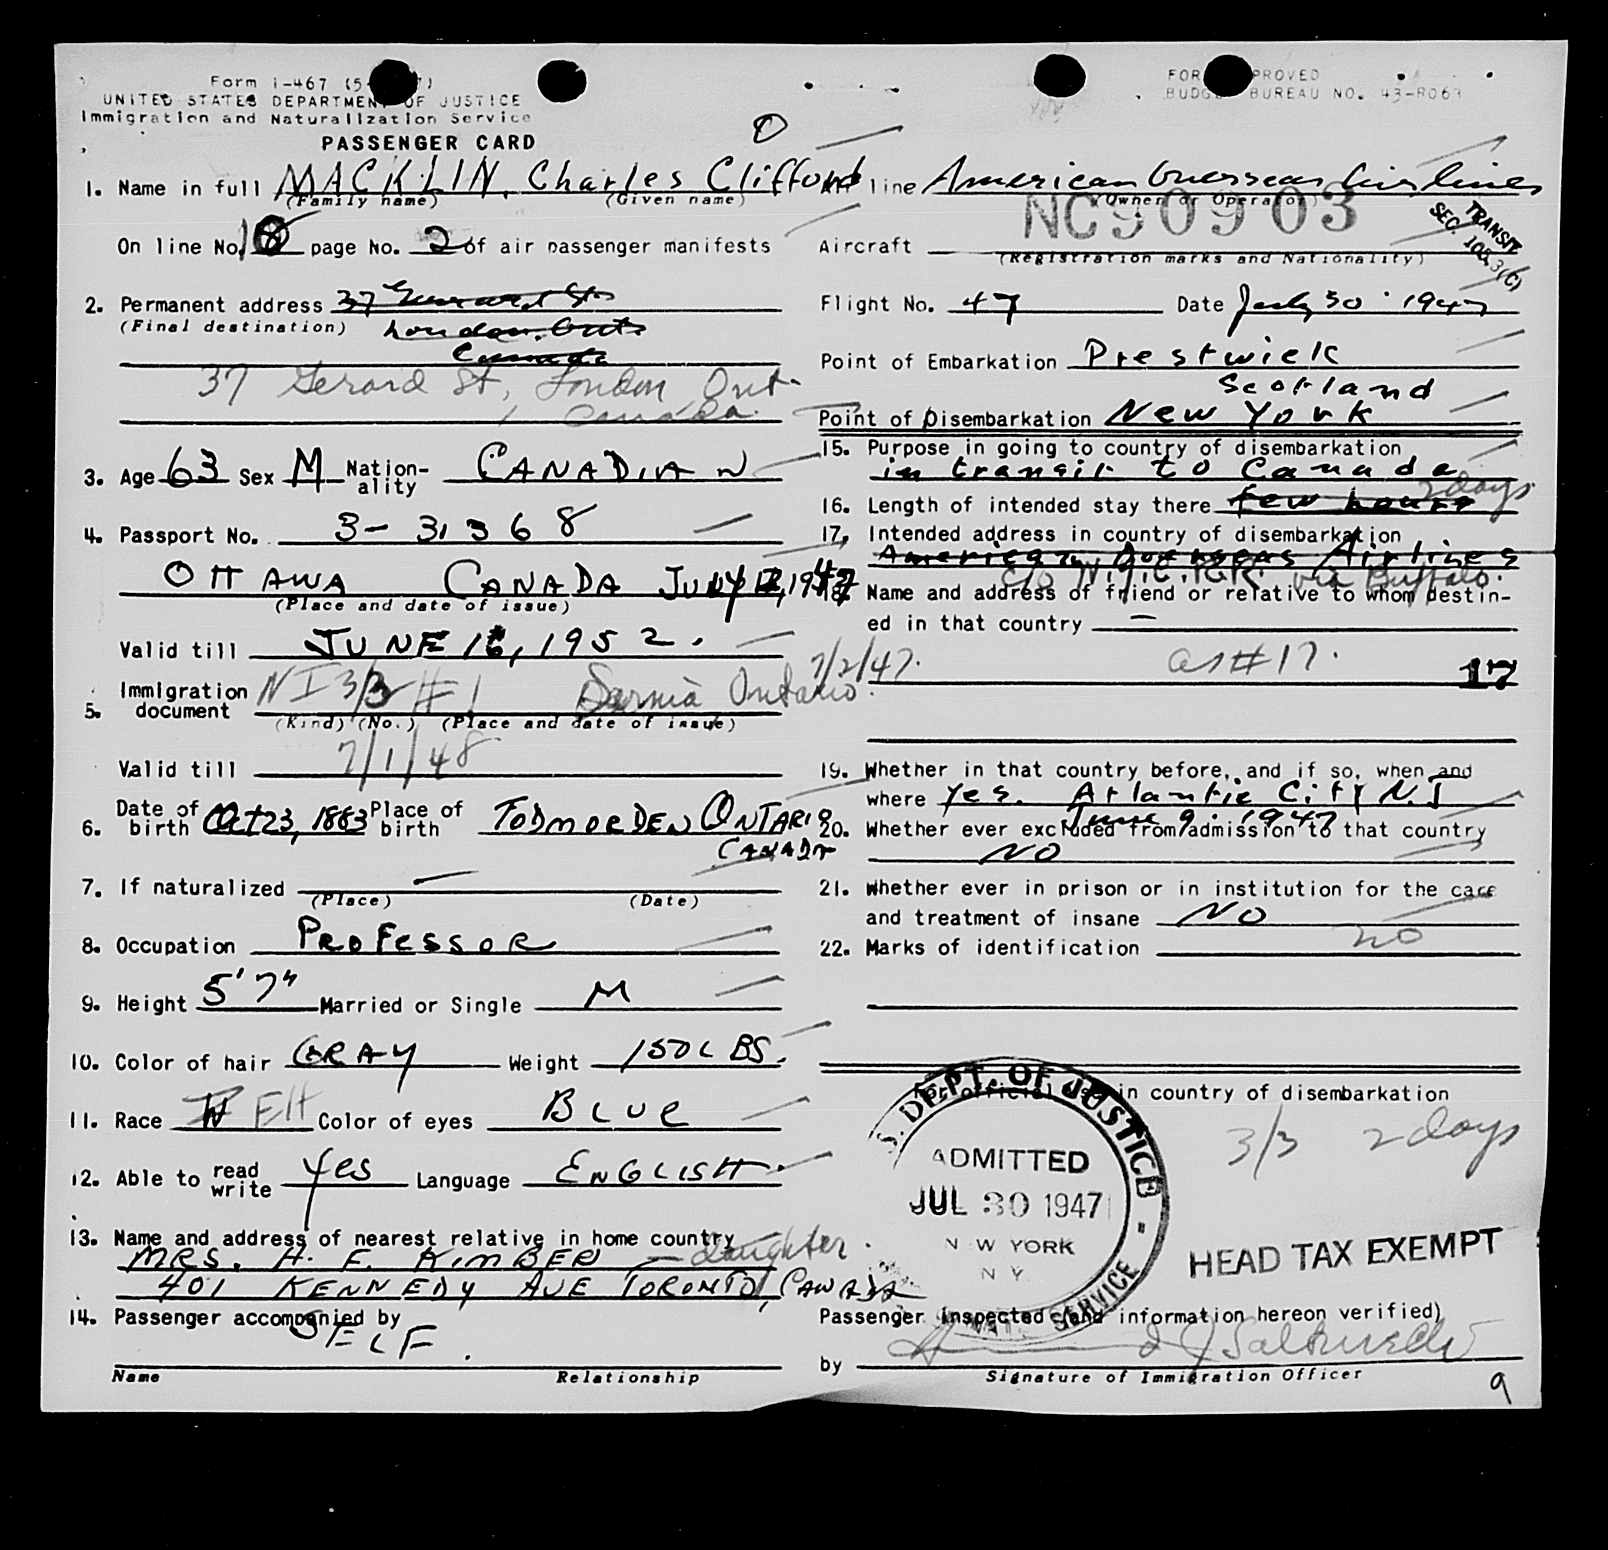 Form I-467 (5-
UNITED STATES DEPARTMENT OF JUSTICE
Immigration and Naturalization Service
PASSENGER CARD
FOR PROVED
BUDG BUREAU NO. 43-R063
1. Name in full MACKLIN, Charles Clifford
(Family name) (Given name)
On line No. 18 page No. 2 of air passenger manifests
2. Permanent address 37 Gerrard St
(Final destination) London Ont
Canada
37 Gerard St, London Ont.
Canada.
3. Age 63 Sex M Nation-ality CANADIAN
4. Passport No. 3-31368
OTTAWA CANADA JULY 12, 1947
(Place and date of issue)
Valid till JUNE 16, 1952.
5. Immigration document NI 3/3 #1 Sarnia Ontario 7/2/47.
(Kind) (No.) (Place and date of issue)
Valid till 7/1/48
6. Date of birth Oct 23, 1883 Place of birth TODMORDEN ONTARIO
CANADA
7. If naturalized
(Place) (Date)
8. Occupation PROFESSOR
9. Height 5' 7" Married or Single M
10. Color of hair GRAY Weight 150 LBS.
11. Race W EH Color of eyes BLUE
12. Able to read write yes Language ENGLISH
13. Name and address of nearest relative in home country
MRS. H. F. KIMBER - daughter.
401 KENNEDY AVE TORONTO, CANADA
14. Passenger accompanied by
SELF.
Name Relationship
line American Overseas Airlines
(Owner or Operator)
NC90903
TRANSIT
SEC. 105.3(c)
Aircraft
(Registration marks and Nationality)
Flight No. 47 Date July 30 1947
Point of Embarkation Prestwick
Scotland
Point of Disembarkation New York
15. Purpose in going to country of disembarkation
in transit to Canada
16. Length of intended stay there few hours 2 days
17. Intended address in country of disembarkation
American Overseas Airlines
c/o N.Y.C.R.R. via Buffalo.
18. Name and address of friend or relative to whom destin-
ed in that country —
as #17. 17
19. Whether in that country before, and if so, when and
where yes. Atlantic City N.J
June 9. 1947
20. Whether ever excluded from admission to that country
NO
21. Whether ever in prison or in institution for the care
and treatment of insane NO
22. Marks of identification no
For official use in country of disembarkation
3/3 2 days
S. DEPT. OF JUSTICE
ADMITTED
JUL 30 1947
N W YORK
N Y
SERVICE
HEAD TAX EXEMPT
Passenger inspected (and information hereon verified)
by
Signature of Immigration Officer
9